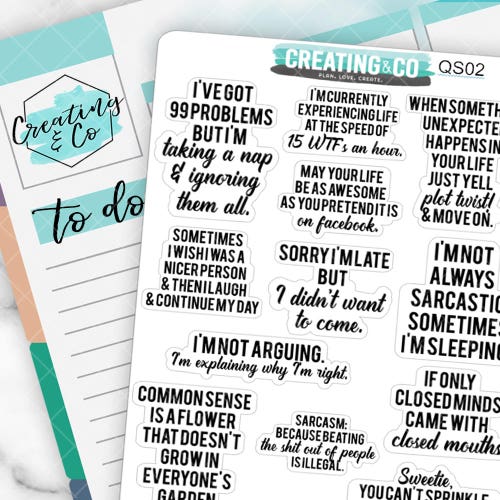 CREATING & CO
PLAN. LOVE. CREATE.
QS02
Creating
& Co
to do
I'VE GOT
99 PROBLEMS
BUT I'M
taking a nap
& ignoring
them all.
I'M CURRENTLY
EXPERIENCING LIFE
AT THE SPEED OF
15 WTFs an hour.
WHEN SOMETH
UNEXPECTE
HAPPENS IN
YOUR LIFE
JUST YELL
plot twist!
& MOVE ON.
MAY YOUR LIFE
BE AS AWESOME
AS YOU PRETEND IT IS
on facebook.
SOMETIMES
I WISH I WAS A
NICER PERSON
& THEN I LAUGH
& CONTINUE MY DAY
SORRY I'M LATE
BUT
I didn't want
to come.
I'M NOT
ALWAYS
SARCASTIC
SOMETIMES
I'M SLEEPING
I'M NOT ARGUING.
I'm explaining why I'm right.
IF ONLY
CLOSED MINDS
CAME WITH
closed mouths
COMMON SENSE
IS A FLOWER
THAT DOESN'T
GROW IN
EVERYONE'S
GARDEN
SARCASM:
BECAUSE BEATING
the shit out of people
IS ILLEGAL.
Sweetie,
YOU CAN'T SPRINKLE